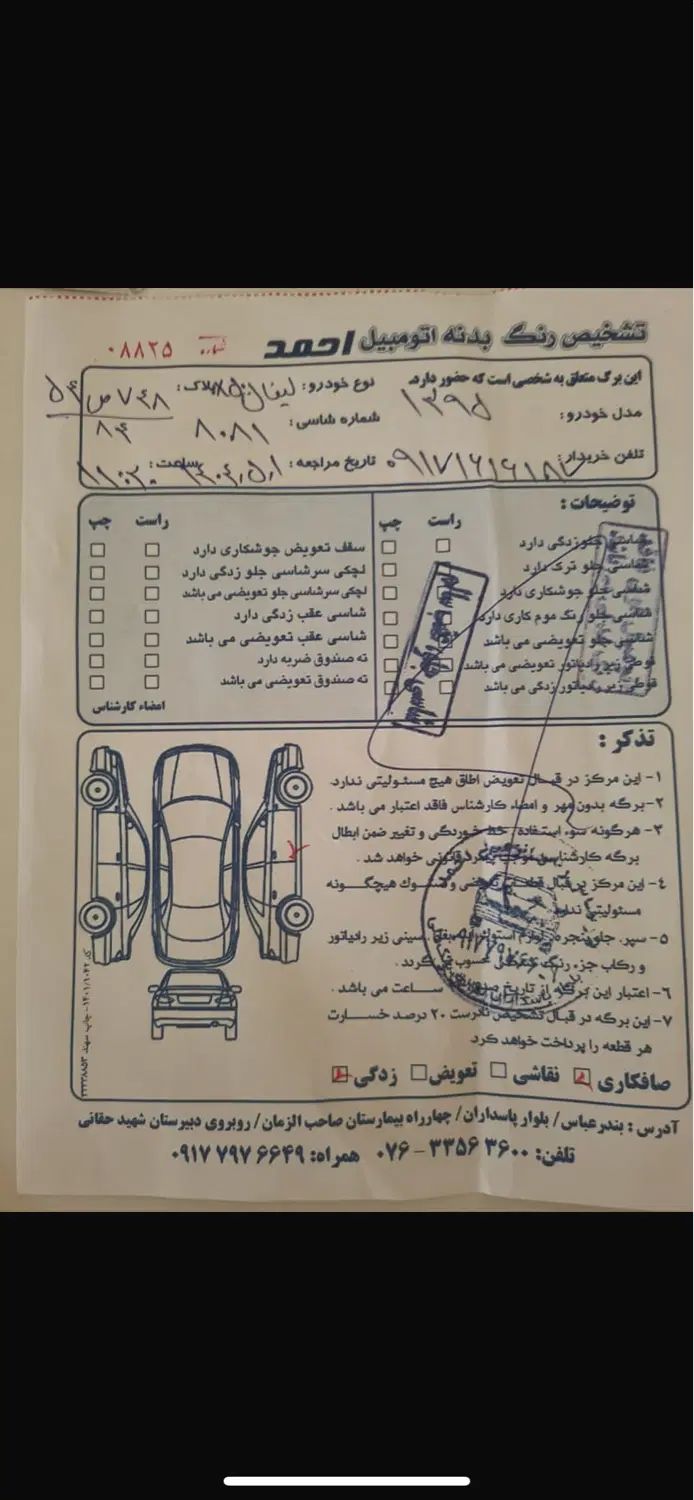 تشخیص رنگ بدنه اتومبیل احمد
شماره ۰۸۸۲۵
این برگ متعلق به شخصی است که حضور دارد. نوع خودرو: لیفان X50 پلاک: ۷۴۸ ص ۵۴
۸۴
مدل خودرو: ۱۳۹۵ شماره شاسی: ۸۰۸۱
تلفن خریدار: ۰۹۱۷۱۶۱۶۱۸۷ تاریخ مراجعه: ۱۴۰۴,۵,۱ ساعت: ۱۱:۳۰
توضیحات:
راست چپ
شاسی جلو زدگی دارد
شاسی جلو ترک دارد
شاسی جلو جوشکاری دارد
شاسی جلو رنگ موم کاری دارد
شاسی جلو تعویضی می باشد
قوطی زیر رادیاتور تعویضی می باشد
قوطی زیر رادیاتور زدگی می باشد
راست چپ
سقف تعویض جوشکاری دارد
لچکی سرشاسی جلو زدگی دارد
لچکی سرشاسی جلو تعویضی می باشد
شاسی عقب زدگی دارد
شاسی عقب تعویضی می باشد
ته صندوق ضربه دارد
ته صندوق تعویضی می باشد
امضاء کارشناس
تذکر:
۱- این مرکز در قبال تعویض اطاق هیچ مسئولیتی ندارد.
۲- برگه بدون مهر و امضاء کارشناس فاقد اعتبار می باشد.
۳- هرگونه سوء استفاده، خط خوردگی و تغییر ضمن ابطال
برگه کارشناسی موجب پیگرد قانونی خواهد شد.
٤- این مرکز در قبال قطعه هیچگونه
مسئولیتی ندارد
۵- سپر، جلو پنجره سینی زیر رادیاتور
و رکاب جزء رنگ محسوب گردد.
٦- اعتبار این برگه از تاریخ ساعت می باشد.
۷- این برگه در قبال تشخیص نادرست ۲۰ درصد خسارت
هر قطعه را پرداخت خواهد کرد
صافکاری نقاشی تعویض زدگی
آدرس: بندرعباس/ بلوار پاسداران/ چهارراه بیمارستان صاحب الزمان/ روبروی دبیرستان شهید حقانی
تلفن: ۳۶۰۰ ۳۳۵۶ - ۰۷۶ همراه: ۶۶۴۹ ۷۹۷ ۰۹۱۷